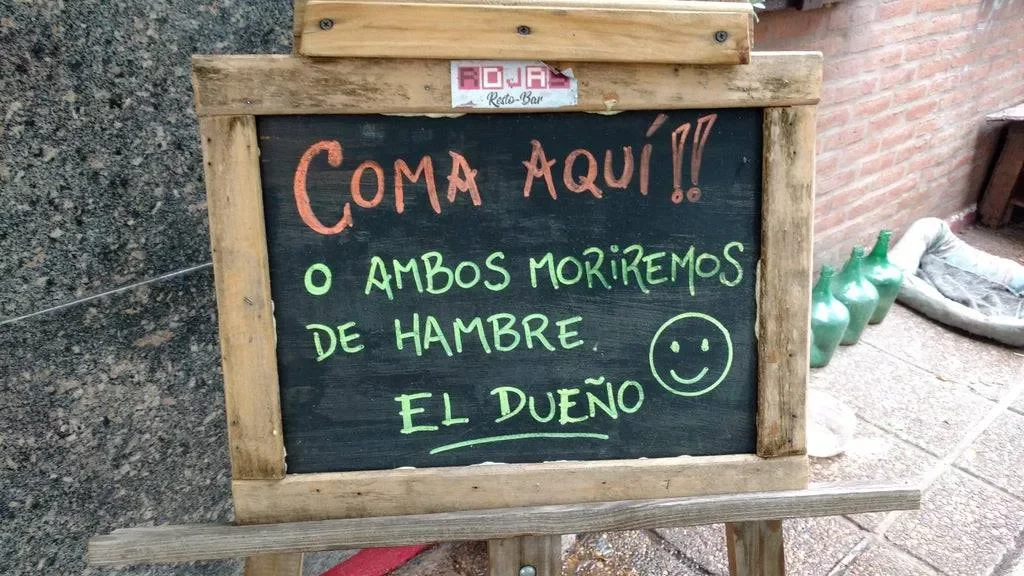 ROJAS
Resto-Bar
COMA AQUÍ!!
O AMBOS MORiREMOS
DE HAMBRE.
EL DUEÑO